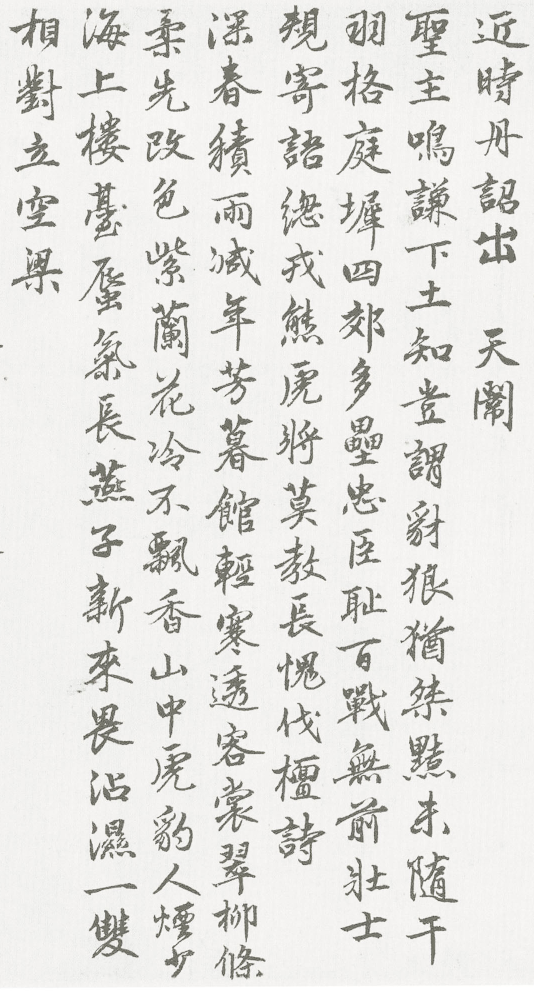 近時丹詔出 天闈
聖主鳴謙下土知豈謂豺狼猶桀黠未隨干
羽格庭墀四郊多壘忠臣耻百戰無前壯士
規寄語總戎熊虎將莫教長愧伐檀詩
深春積雨減年芳暮館輕寒透客裳翠柳條
柔先改色紫蘭花冷不飄香山中虎豹人煙少
海上樓臺蜃氣長燕子新來畏沾濕一雙
相對立空梁